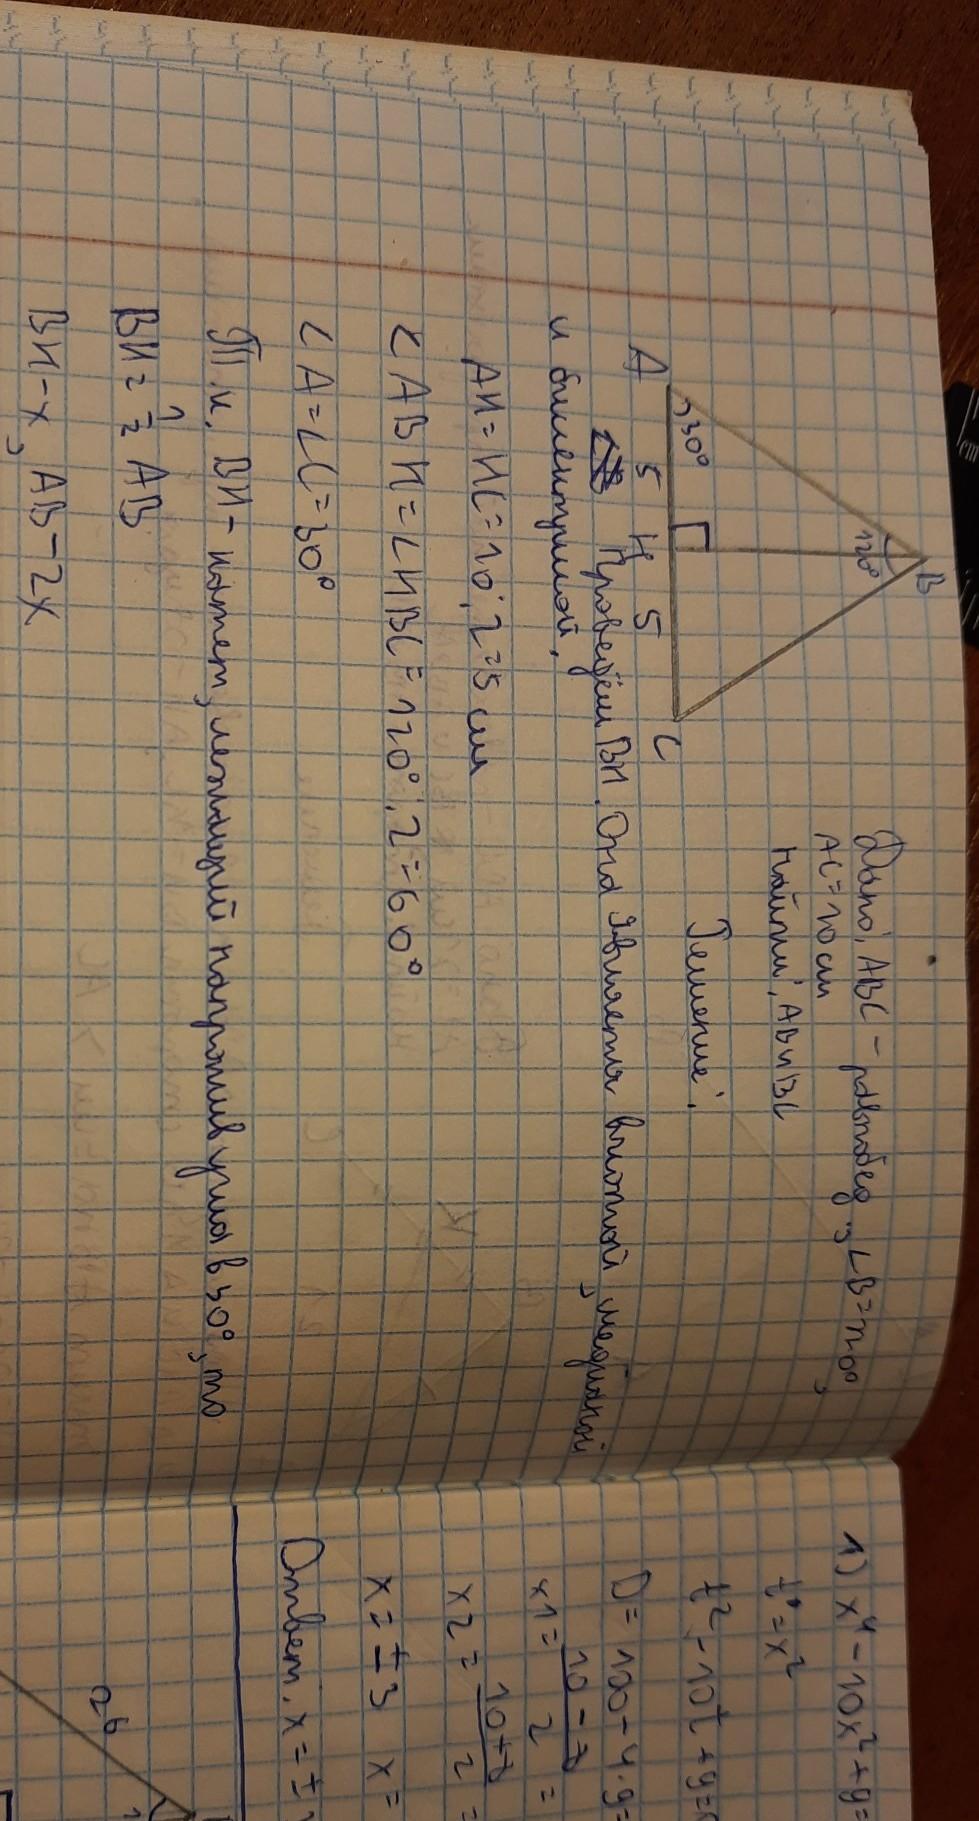 B
120°
30°
A 5 H 5 C
Дано: ABC - равнобед., ∠B=120°,
AC=10 см
Найти: AB и BC
Решение:
Проведём BH. Она является высотой, медианой
и биссектрисой.
AH=HC=10:2=5 см
∠ABH=∠HBC=120°:2=60°
∠A=∠C=30°
Т.к. BH-катет, лежащий напротив угла в 30°, то
BH=1/2 AB
BH-x, AB-2x
1) x⁴-10x²+9=
t=x²
t²-10t+9=
D=100-4·9=
x1=(10-8)/2=
x2=(10+8)/2=
x=±3 x=
Ответ. x=±
26
cm